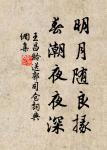 明月随良掾
春潮夜夜深
王昌龄送郭司仓词典
网集